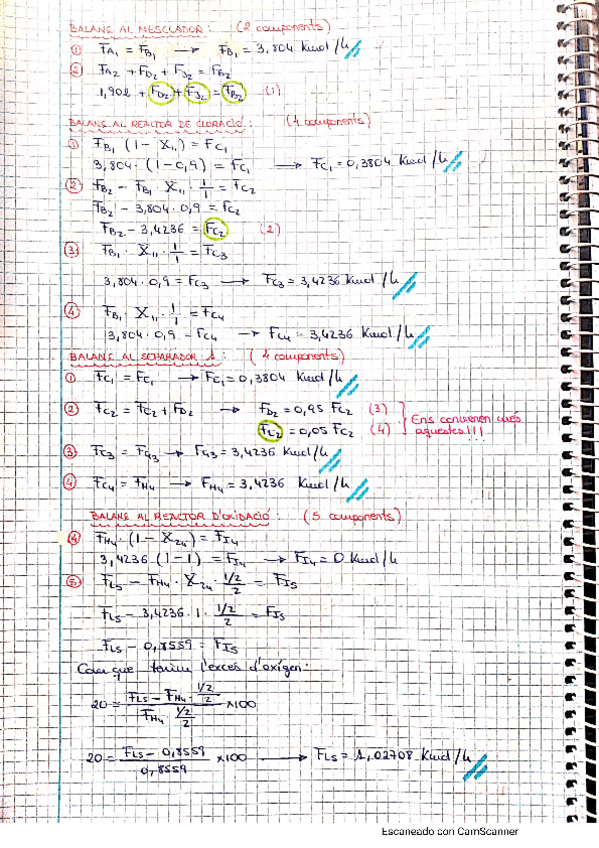 BALANÇ AL MESCLADOR: (2 components)
① F_A1 = F_B1 → F_B1 = 3,804 Kmol/h
② F_A2 + F_D2 + F_J2 = F_B2
1,902 + F_D2 + F_J2 = F_B2 (1)
BALANÇ AL REACTOR DE CLORACIÓ: (4 components)
① F_B1 (1 - X_11) = F_C1
3,804 · (1 - 0,9) = F_C1 → F_C1 = 0,3804 Kmol/h
② F_B2 - F_B1 · X_11 · 1/1 = F_C2
F_B2 - 3,804 · 0,9 = F_C2
F_B2 - 3,4236 = F_C2 (2)
③ F_B1 · X_11 · 1/1 = F_C3
3,804 · 0,9 = F_C3 → F_C3 = 3,4236 Kmol/h
④ F_B1 · X_11 · 1/1 = F_C4
3,804 · 0,9 = F_C4 → F_C4 = 3,4236 Kmol/h
BALANÇ AL SEPARADOR 1: (4 components)
① F_C1 = F_C1 → F_C1 = 0,3804 Kmol/h
② F_C2 = F_C2 + F_D2 → F_D2 = 0,95 F_C2 (3)
= 0,05 F_C2 (4) Ens convenen més aquestes!!!
③ F_C3 = F_G3 → F_G3 = 3,4236 Kmol/h
④ F_C4 = F_H4 → F_H4 = 3,4236 Kmol/h
BALANÇ AL REACTOR D'OXIDACIÓ (5 components)
④ F_H4 · (1 - X_24) = F_I4
3,4236 · (1 - 1) = F_I4 → F_I4 = 0 Kmol/h
⑤ F_L5 - F_H4 · X_24 · 1/2/2 = F_I5
F_L5 - 3,4236 · 1 · 1/2/2 = F_I5
F_L5 - 0,8559 = F_I5
Com que tenim l'excés d'oxígen:
20 = (F_L5 - F_H4 · 1/2/2)/(F_H4 · 1/2/2) × 100
20 = (F_L5 - 0,8559)/0,8559 × 100 → F_L5 = 1,02708 Kmol/h
Escaneado con CamScanner